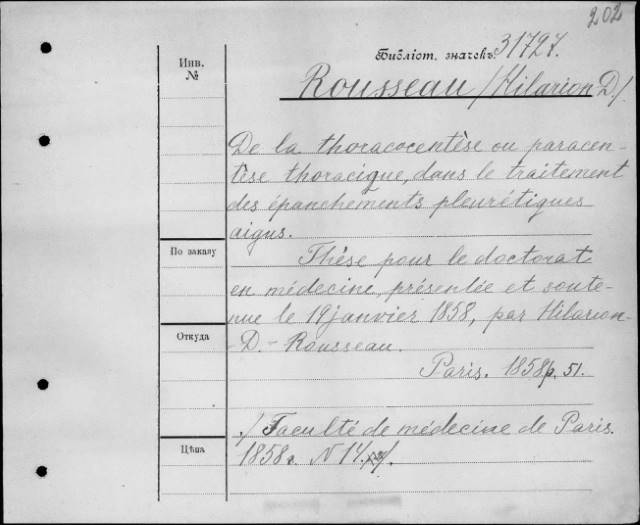 202
Библіот. значекъ 31727.
Инв.
№
Rousseau /Hilarion D/.
De la thoracocentèse ou paracen-
tèse thoracique, dans le traitement
des épanchements pleurétiques
aigus.
По заказу
Thèse pour le doctorat
en médecine, présentée et soute-
nue le 19 janvier 1858, par Hilarion-
Откуда
D.- Rousseau.
Paris. 1858 p. 51.
/Faculté de médecine de Paris.
Цѣна
1858. N 14.